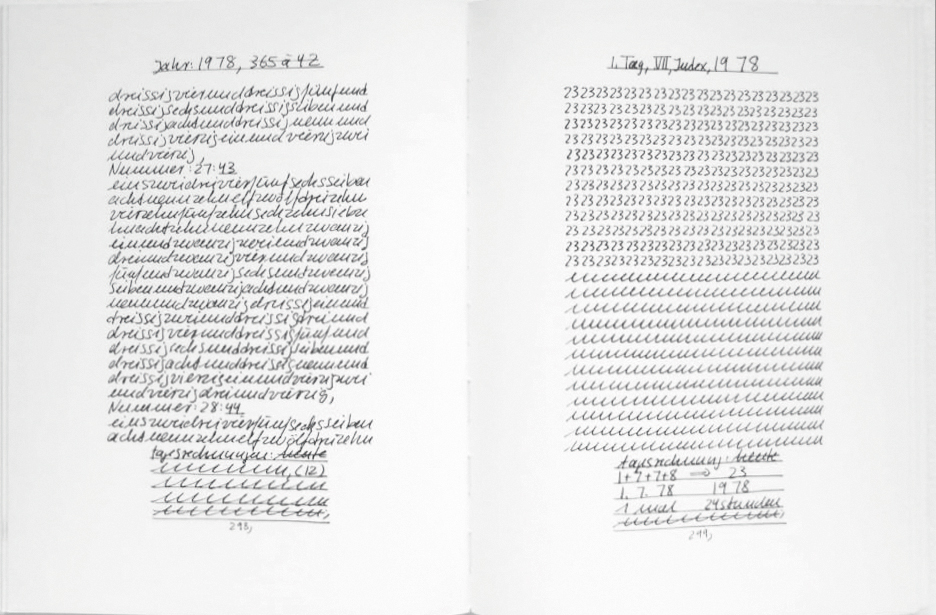 Jahr: 1978, 365 à 42
dreissigvierunddreissigfünfund
dreissigsechsunddreissigsiebenund
dreissigachtunddreissigneunund
dreissigvierzigeinundvierzigzwei
undvierzig,
Nummer: 27:43
einszweidreivierfünfsechssieben
achtneunzehnelfzwölfdreizehn
vierzehnfünfzehnsechzehnsiebze
hnachtzehnneunzehnzwanzig
einundzwanzigzweiundzwanzig
dreiundzwanzigvierundzwanzig
fünfundzwanzigsechsundzwanzig
siebenundzwanzigachtundzwanzig
neunundzwanzigdreissigeinund
dreissigzweiunddreissigdreiund
dreissigvierunddreissigfünfund
dreissigsechsunddreissigsiebenund
dreissigachtunddreissigneunund
dreissigvierzigeinundvierzigzwei
undvierzigdreiundvierzig,
Nummer: 28:44
einszweidreivierfünfsechssieben
achtneunzehnelfzwölfdreizehn
tagesrechnung: heute
(12)
298,
1. Tag, VII, Index, 1978
232323232323232323232323232323232323
232323232323232323232323232323232323
232323232323232323232323232323232323
232323232323232323232323232323232323
232323232323232323232323232323232323
232323232323232323232323232323232323
232323232323232323232323232323232323
232323232323232323232323232323232323
232323232323232323232323232323232323
232323232323232323232323232323232323
232323232323232323232323232323232323
232323232323232323232323232323232323
tagesrechnung: heute
1+7+7+8 ⟹ 23
1. 7. 78 1978
1 mal 24 stunden
299,